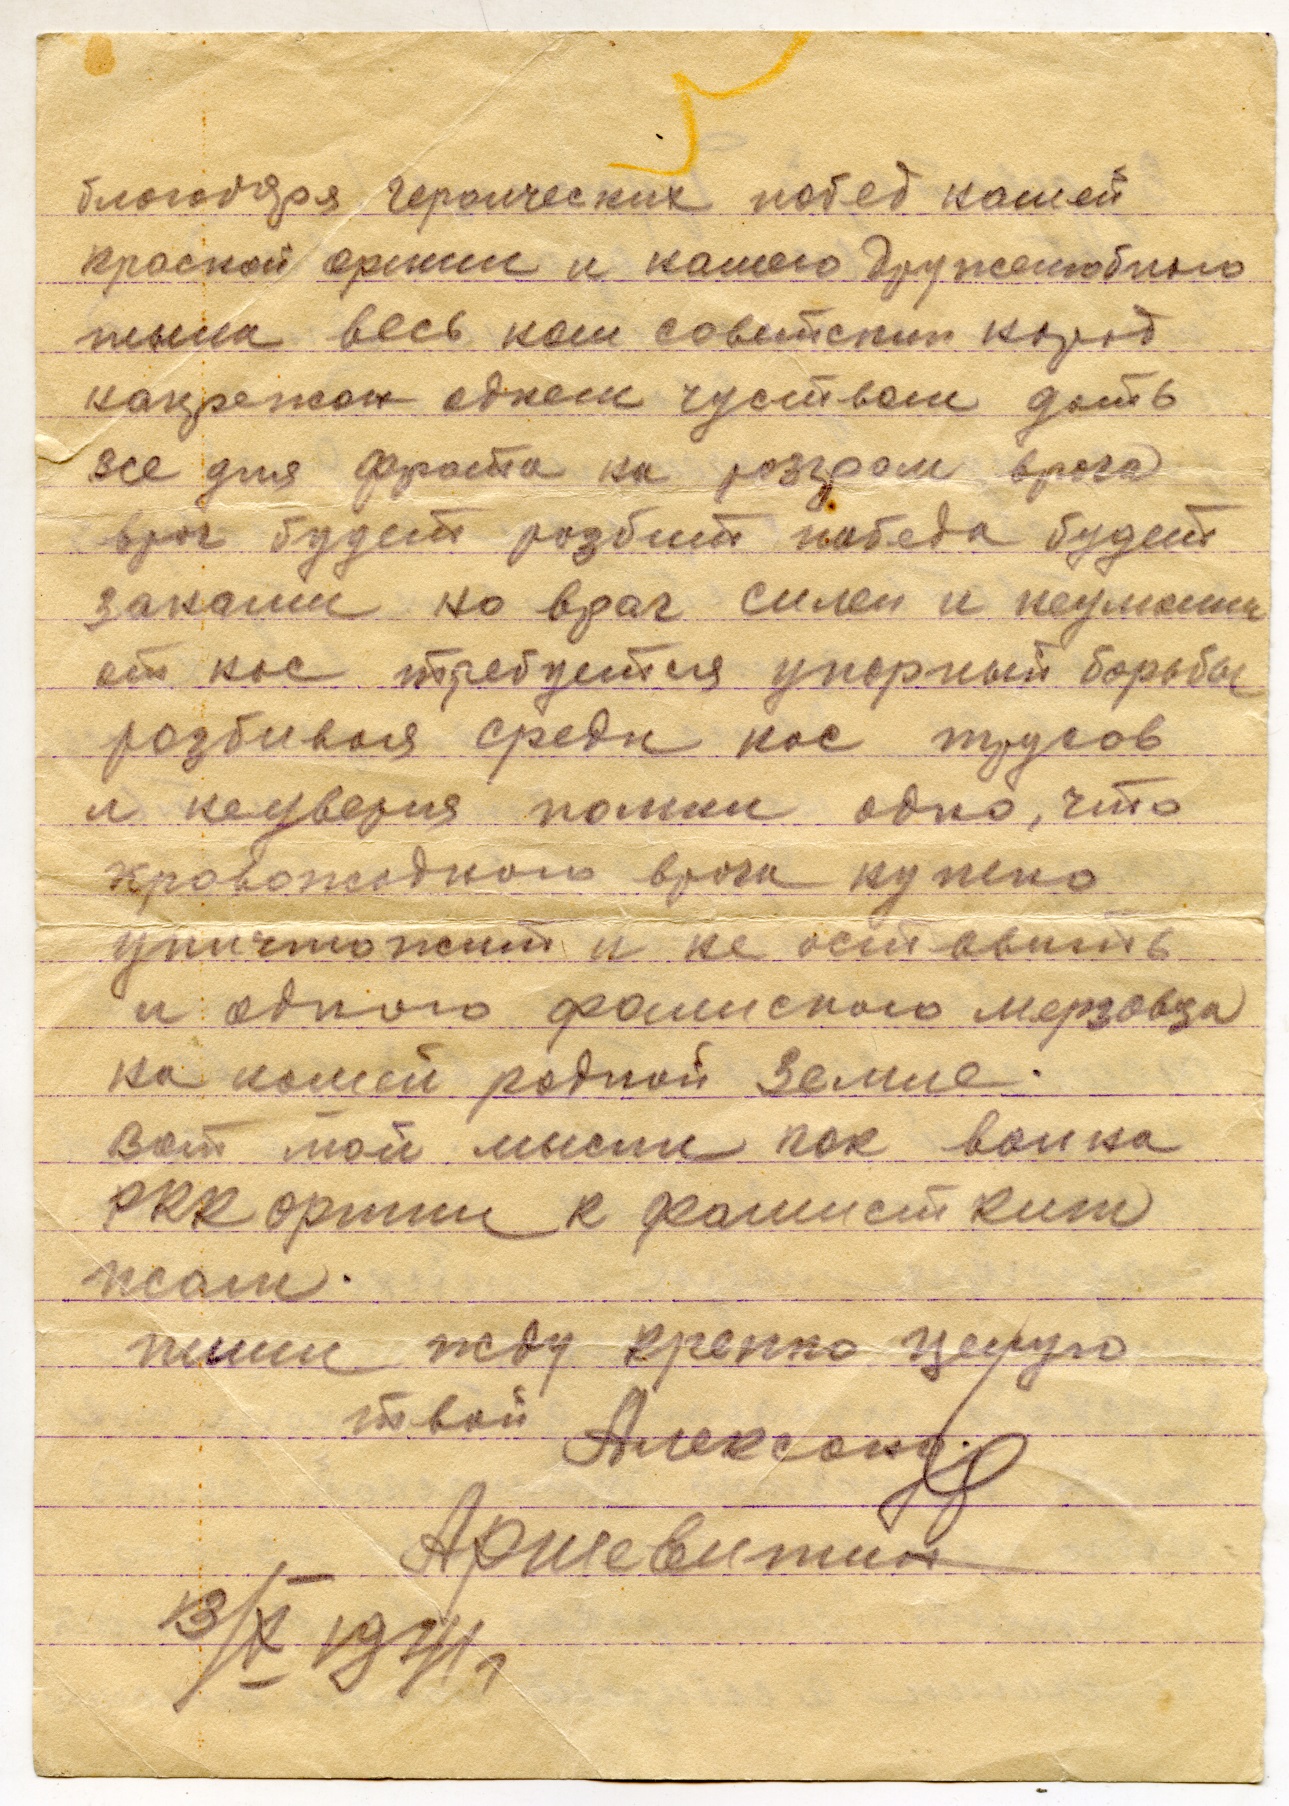 благодаря героических побед нашей
красной армии и нашего дружелюбного
тыла весь наш советский народ
напряжон одном чуством дать
все для фрота на розгром врага
враг будет розбит победа будет
занами но враг силен и
от нас требуется упорный борьбы
розбивая среди нас трусов
и неуверия помни одно, что
кровожадного врага нужно
уничтожит и не оставить
и одного фашиского мерзавца
на нашей родной земле.
вот мой мысли как воина
РКК армии к фашистким
псам.
пиши жду крепко целую
твой Александр
13/X 1941 г